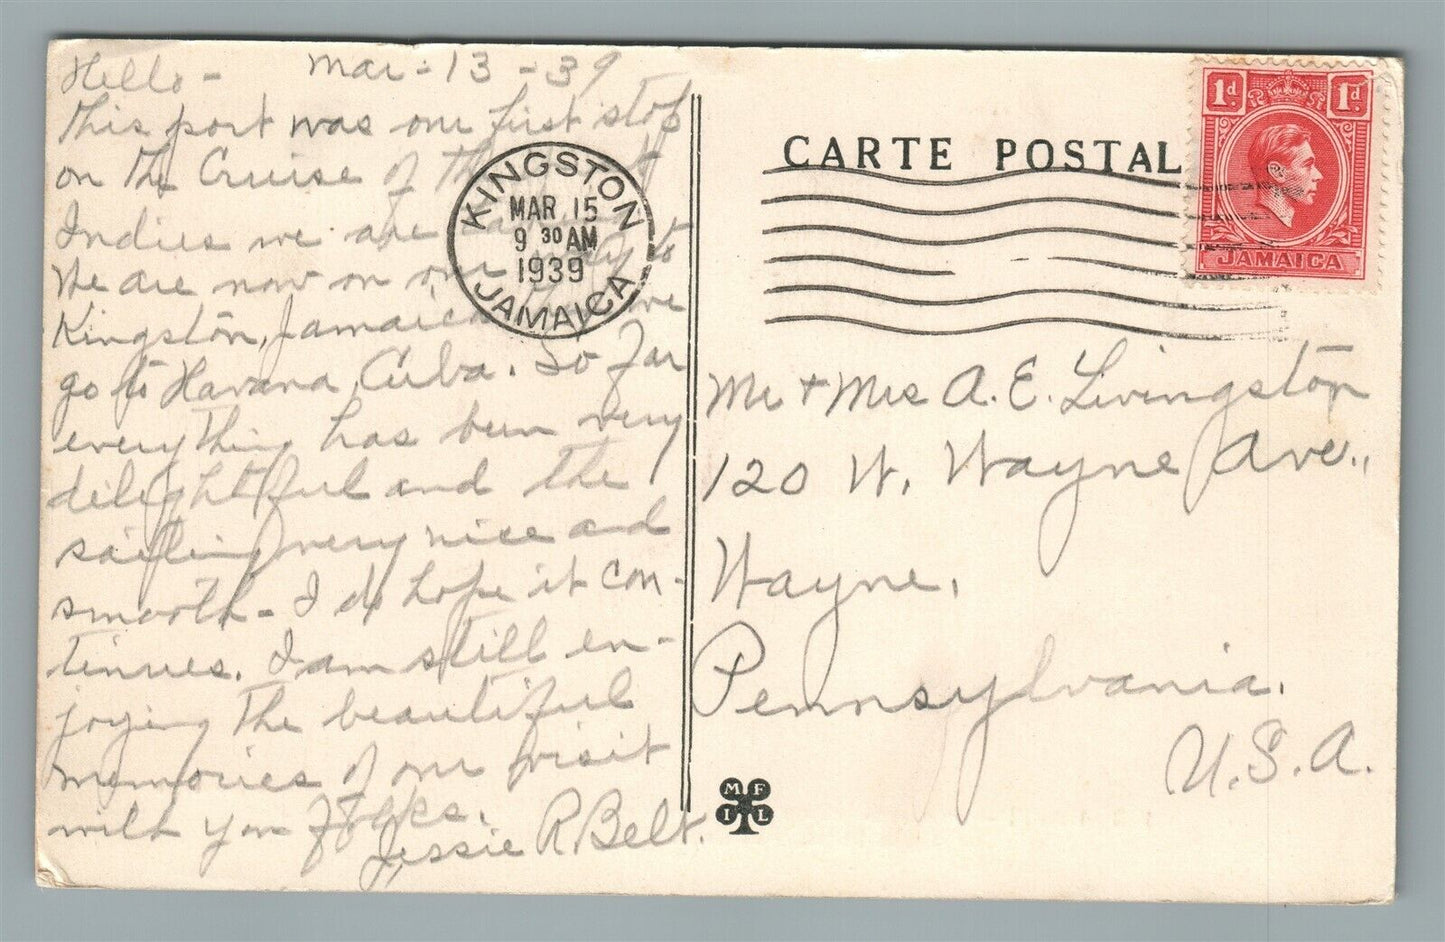 Hello - Mar - 13 - 39
This port was our first stop
on the Cruise of the West
Indies we are
We are now on our way to
Kingston, Jamaica we
go to Havana, Cuba. So far
everything has been very
delightful and the
sailing very nice and
smooth - I do hope it con-
tinues. I am still en-
joying the beautiful
memories of our visit
with you folks.
Jessie R. Belt.
KINGSTON
MAR 15
9 30 AM
1939
JAMAICA
CARTE POSTALE
1d. 1d.
JAMAICA
Mr + Mrs A. E. Livingston
120 W. Wayne Ave.,
Wayne,
Pennsylvania.
U.S.A.
M F
I L